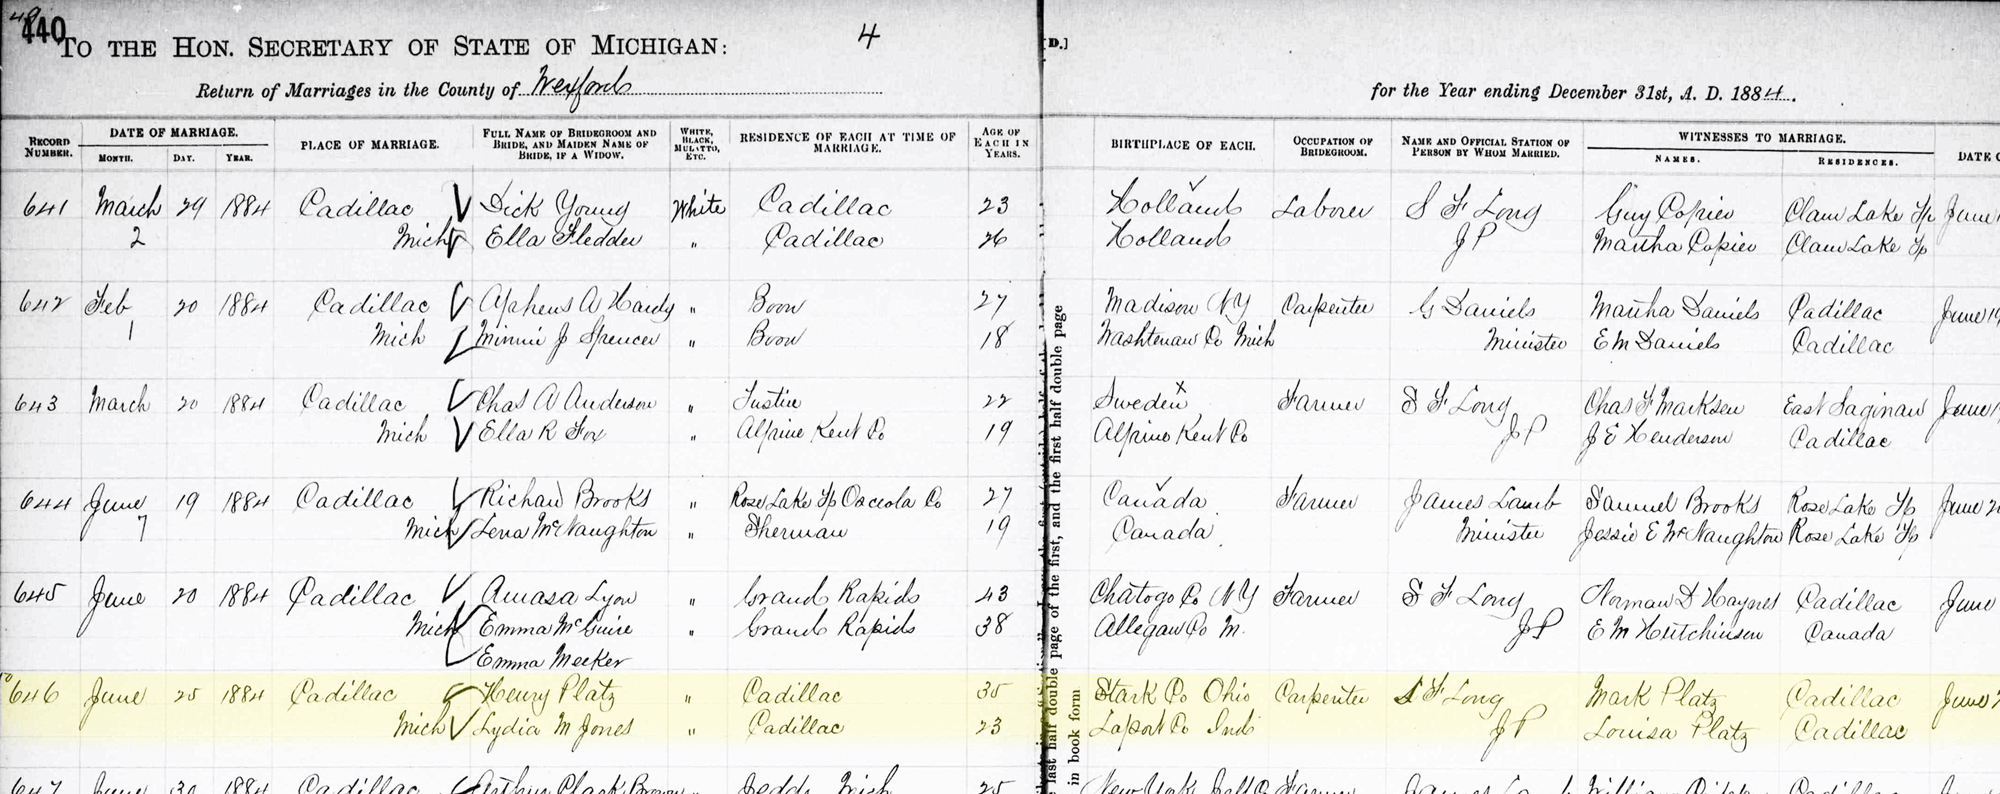 440
TO THE HON. SECRETARY OF STATE OF MICHIGAN: 4 [D.]
Return of Marriages in the County of Wexford for the Year ending December 31st, A. D. 1884.
RECORD NUMBER. DATE OF MARRIAGE. MONTH. DAY. YEAR. PLACE OF MARRIAGE. FULL NAME OF BRIDEGROOM AND BRIDE, AND MAIDEN NAME OF BRIDE, IF A WIDOW. WHITE, BLACK, MULATTO, ETC. RESIDENCE OF EACH AT TIME OF MARRIAGE. AGE OF EACH IN YEARS. BIRTHPLACE OF EACH. OCCUPATION OF BRIDEGROOM. NAME AND OFFICIAL STATION OF PERSON BY WHOM MARRIED. WITNESSES TO MARRIAGE. NAMES. RESIDENCES. DATE
641 March 29 1884 Cadillac Dick Young White Cadillac 23 Holland Laborer S F Long Guy Copier Clam Lake Tp June
2 Mich Ella Fledder " Cadillac 26 Holland J P Martha Copier Clam Lake Tp
642 Feb 20 1884 Cadillac Alpheus A Hardy " Boon 27 Madison N Y Carpenter G Daniels Martha Daniels Cadillac June
1 Mich Minnie J Spencer " Boon 18 Washtenaw Co Mich Minister E M Daniels Cadillac
643 March 20 1884 Cadillac Chas A Anderson " Tustin 22 Sweden Farmer S F Long Chas F Marksen East Saginaw June
Mich Ella R Fox " Alpine Kent Co 19 Alpine Kent Co J P J E Henderson Cadillac
644 June 19 1884 Cadillac Richard Brooks " Rose Lake Tp Osceola Co 27 Canada Farmer James Lamb Samuel Brooks Rose Lake Tp June 2
7 Mich Lena McNaughton " Sherman 19 Canada Minister Jessie E McNaughton Rose Lake Tp
645 June 20 1884 Cadillac Amasa Lyon " Grand Rapids 43 Chatogo Co N Y Farmer S F Long Norman D Haynes Cadillac June
Mich Emma McGuire " Grand Rapids 38 Allegan Co M. J P E M Hutchinson Canada
Emma Meeker
646 June 25 1884 Cadillac Henry Platz " Cadillac 35 Stark Co Ohio Carpenter S F Long Mark Platz Cadillac June 2
Mich Lydia M Jones " Cadillac 23 Laport Co Ind J P Louisa Platz Cadillac
647 June 30 1884 Cadillac Arthur Clark Brown " Jedds Mich 25 New York Farmer James William Cadillac
last half double page of the first, and the first half double page
in book form